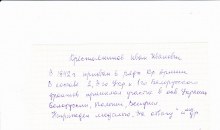 Крестовников Иван Иванович
В 1942 г призван в ряды Кр Армии
В составе 2, 3 и Укр. и 1го Белорусского
фронтов принимал участие в осв Украины
Белоруссии, Польши, Венгрии
Награжден медалью "За отвагу" и др